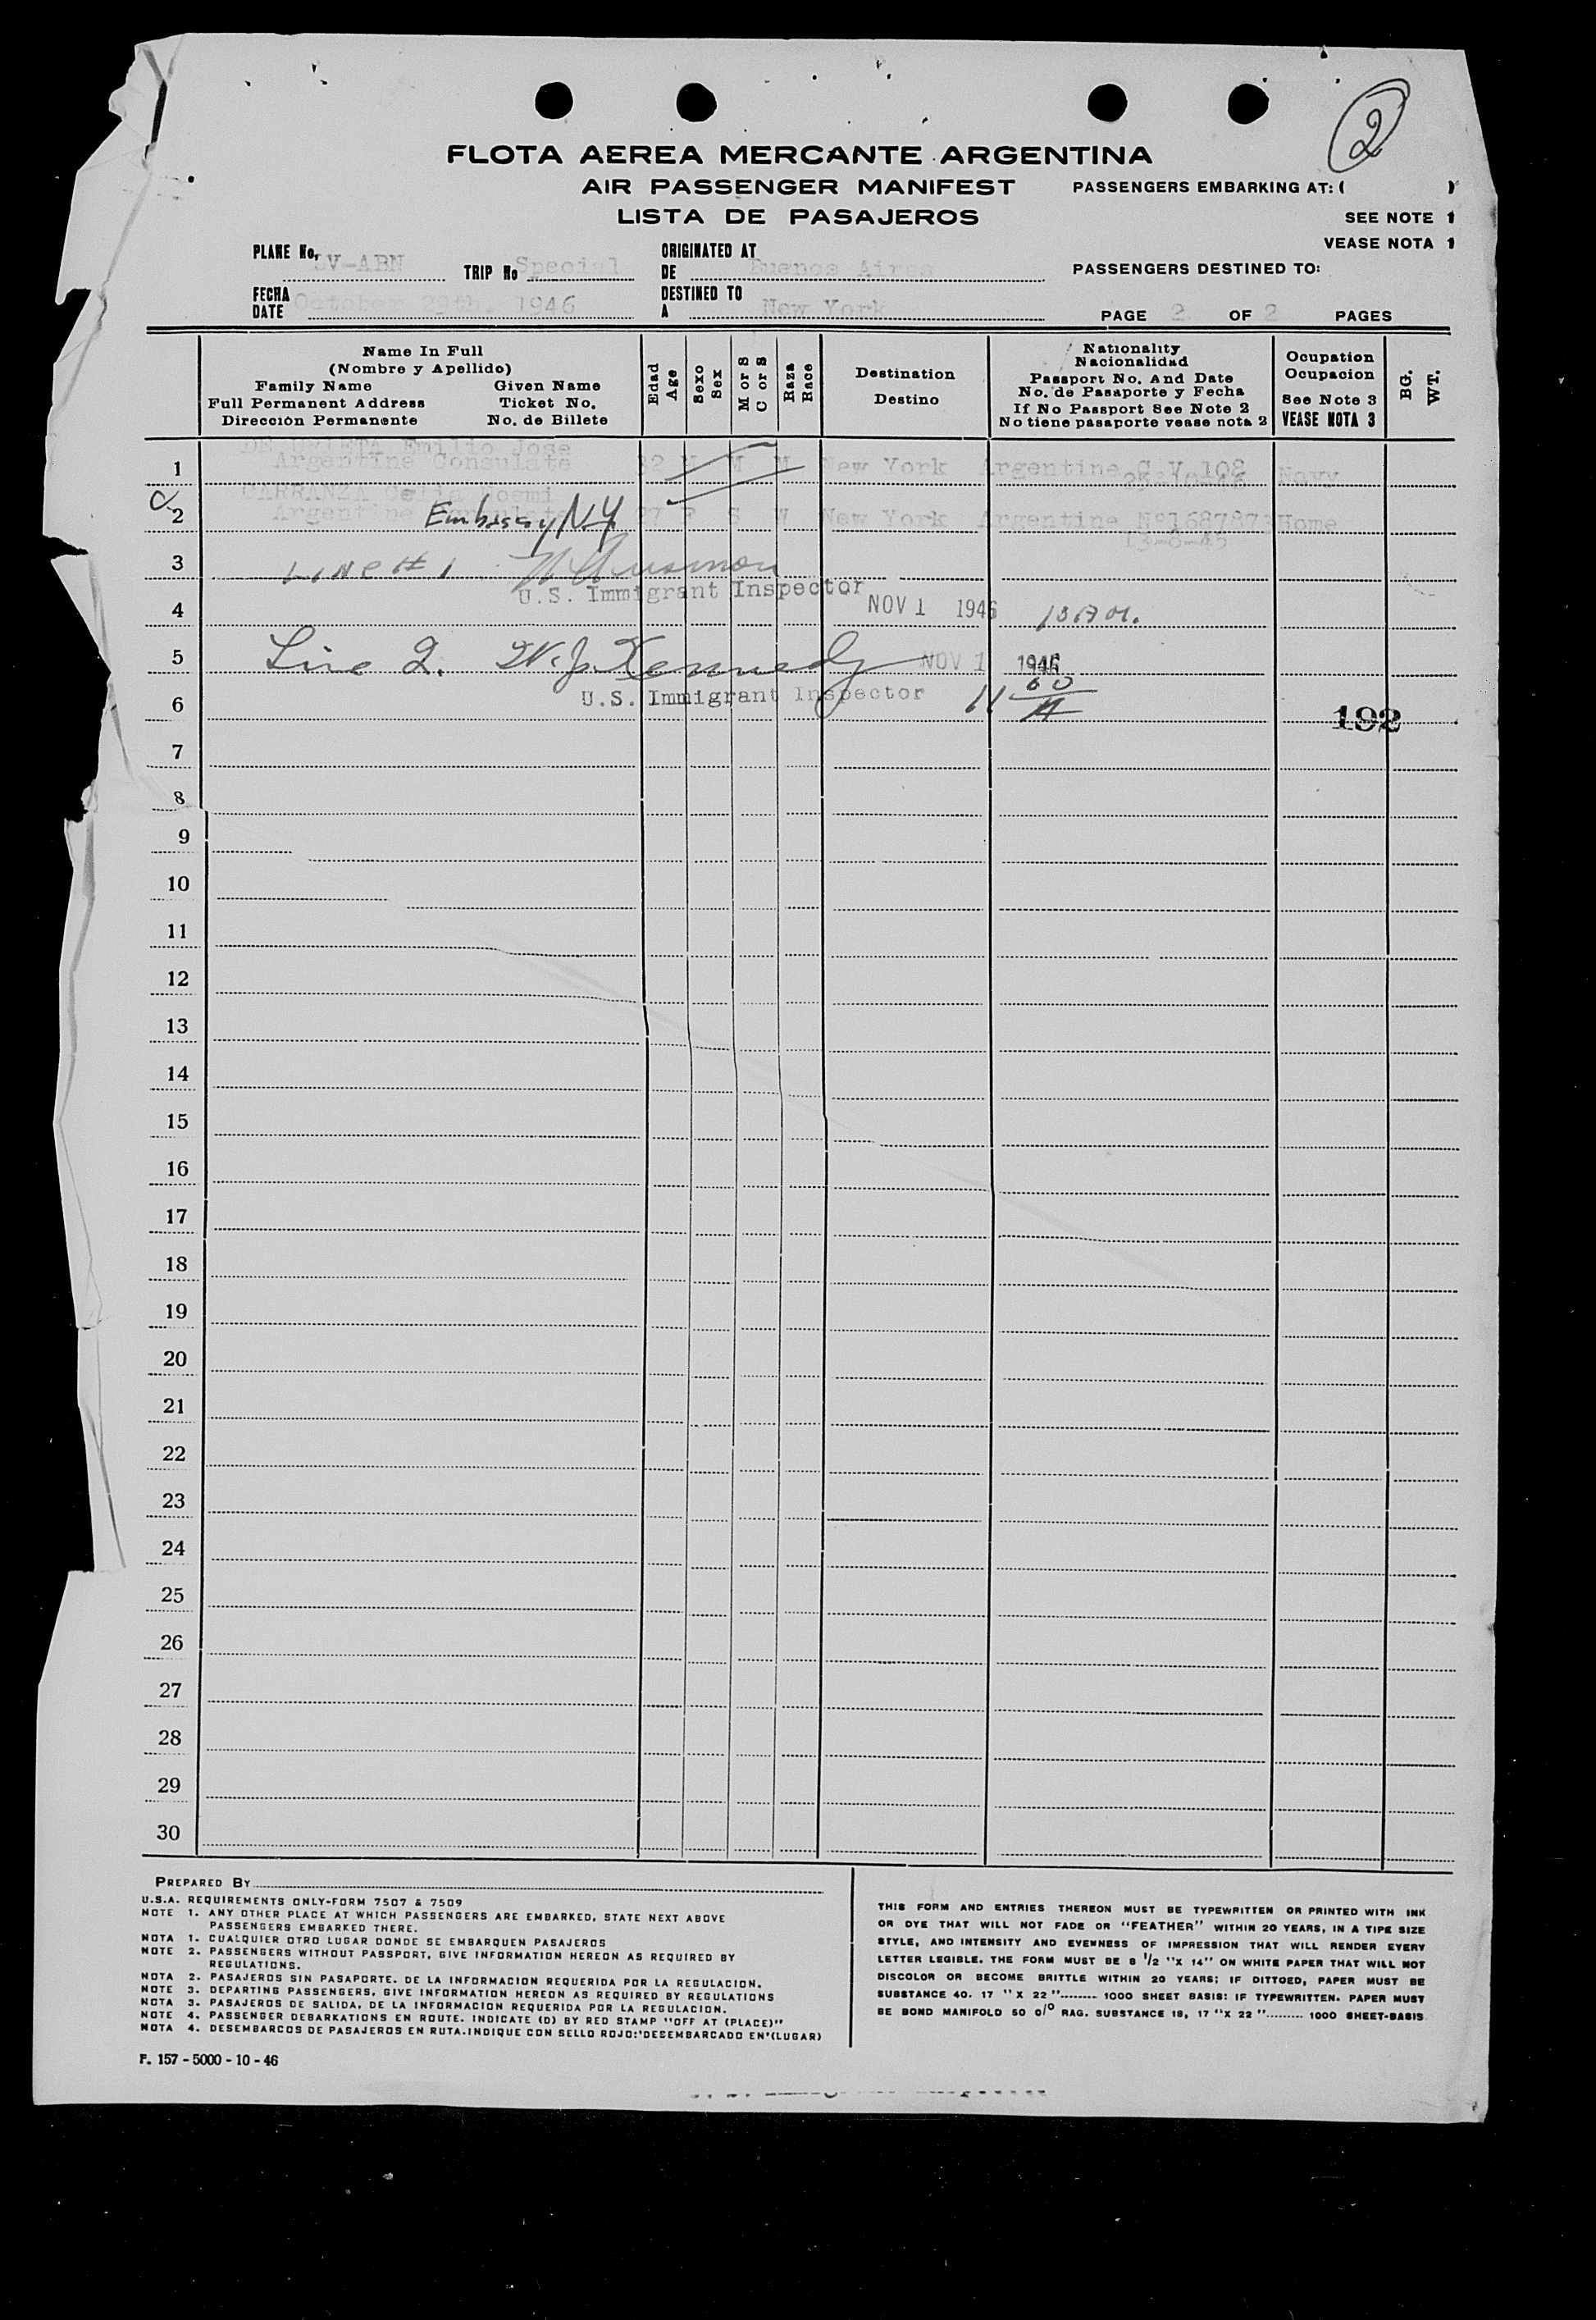 2
FLOTA AEREA MERCANTE ARGENTINA
AIR PASSENGER MANIFEST
LISTA DE PASAJEROS
PASSENGERS EMBARKING AT: ( )
SEE NOTE 1
VEASE NOTA 1
PLANE No, LV-ABN TRIP No Special
ORIGINATED AT
DE Buenos Aires
PASSENGERS DESTINED TO:
FECHA
DATE October 29th. 1946
DESTINED TO
A New York
PAGE 2 OF 2 PAGES
Name In Full
(Nombre y Apellido)
Family Name Given Name
Full Permanent Address Ticket No.
Dirección Permanente No. de Billete
Edad
Age
Sexo
Sex
M or S
C or S
Raza
Race
Destination
Destino
Nationality
Nacionalidad
Passport No. And Date
No. de Pasaporte y Fecha
If No Passport See Note 2
No tiene pasaporte vease nota 2
Ocupation
Ocupacion
See Note 3
VEASE NOTA 3
BG.
WT.
Emilio Jose
1 Argentine Consulate 32 M M W New York Argentine C.V.108 Navy
CARRANZA Celia Noemi
2 Argentine Embassy NY 27 F S W New York Argentine Nº1687873 Home
13-8-45
3 LINE # 1
U.S. Immigrant Inspector
4 NOV 1 1946
5 Line 2. W.J. Kennedy NOV 1 1946
U.S. Immigrant Inspector
6 192
7
8
9
10
11
12
13
14
15
16
17
18
19
20
21
22
23
24
25
26
27
28
29
30
PREPARED BY
U.S.A. REQUIREMENTS ONLY-FORM 7507 & 7509
NOTE 1. ANY OTHER PLACE AT WHICH PASSENGERS ARE EMBARKED, STATE NEXT ABOVE
PASSENGERS EMBARKED THERE.
NOTA 1. CUALQUIER OTRO LUGAR DONDE SE EMBARQUEN PASAJEROS
NOTE 2. PASSENGERS WITHOUT PASSPORT, GIVE INFORMATION HEREON AS REQUIRED BY
REGULATIONS.
NOTA 2. PASAJEROS SIN PASAPORTE. DE LA INFORMACION REQUERIDA POR LA REGULACION.
NOTE 3. DEPARTING PASSENGERS, GIVE INFORMATION HEREON AS REQUIRED BY REGULATIONS
NOTA 3. PASAJEROS DE SALIDA, DE LA INFORMACION REQUERIDA POR LA REGULACION.
NOTE 4. PASSENGER DEBARKATIONS EN ROUTE. INDICATE (D) BY RED STAMP "OFF AT (PLACE)"
NOTA 4. DESEMBARCOS DE PASAJEROS EN RUTA.INDIQUE CON SELLO ROJO:'DESEMBARCADO EN'(LUGAR)
THIS FORM AND ENTRIES THEREON MUST BE TYPEWRITTEN OR PRINTED WITH INK
OR DYE THAT WILL NOT FADE OR "FEATHER" WITHIN 20 YEARS, IN A TIPE SIZE
STYLE, AND INTENSITY AND EVENNESS OF IMPRESSION THAT WILL RENDER EVERY
LETTER LEGIBLE. THE FORM MUST BE 8 1/2 "X 14" ON WHITE PAPER THAT WILL NOT
DISCOLOR OR BECOME BRITTLE WITHIN 20 YEARS; IF DITTOED, PAPER MUST BE
SUBSTANCE 40. 17 " X 22 "......... 1000 SHEET BASIS: IF TYPEWRITTEN. PAPER MUST
BE BOND MANIFOLD 50 0/0 RAG. SUBSTANCE 18, 17 "X 22 "......... 1000 SHEET-BASIS
F. 157 - 5000 - 10 - 46